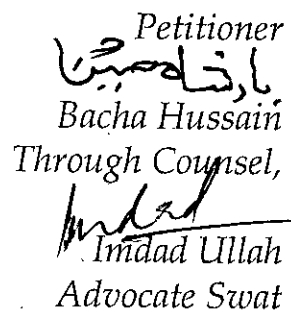 Petitioner
بادشاه حسین
Bacha Hussain
Through Counsel,
Imdad
Imdad Ullah
Advocate Swat